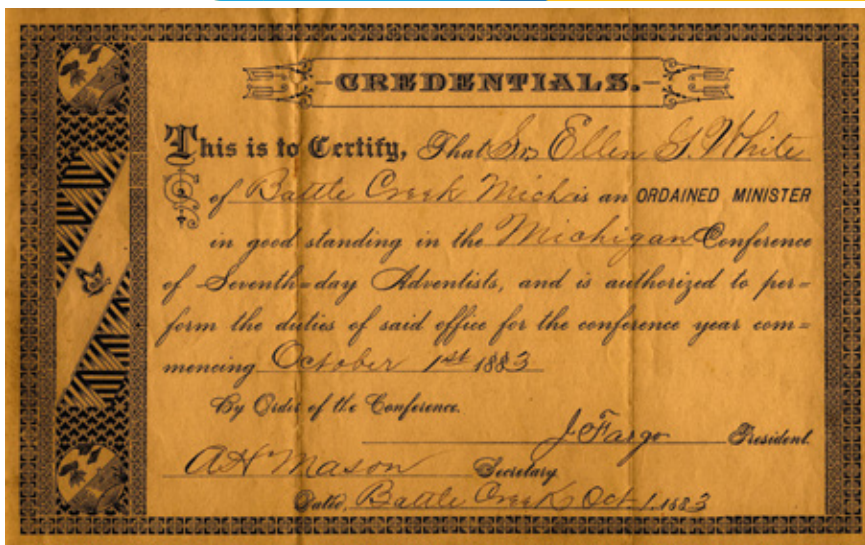 CREDENTIALS.
This is to Certify, That Sr. Ellen G. White
of Battle Creek Mich is an ORDAINED MINISTER
in good standing in the Michigan Conference
of Seventh=day Adventists, and is authorized to per=
form the duties of said office for the conference year com=
mencing October 1st 1883
By Order of the Conference.
J Fargo President.
A H Mason Secretary
Dated, Battle Creek Oct. 1. 1883